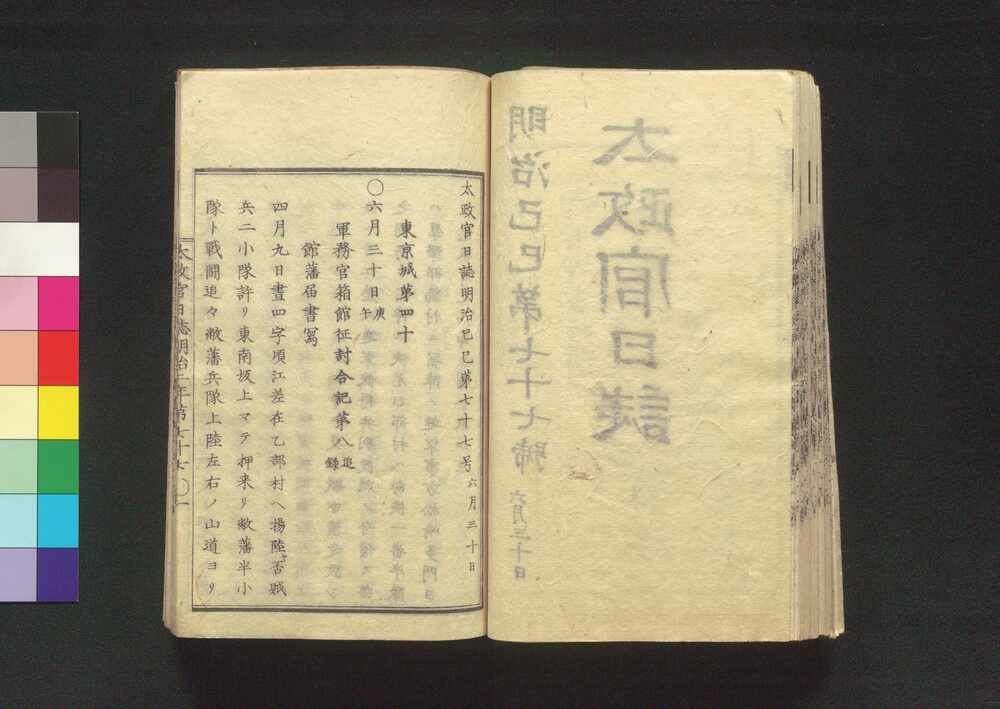 太政官日誌
明治己巳第七十七號
六月三十日
太政官日誌明治己巳第七十七号 六月三十日
東京城第四十
〇六月三十日庚午
軍務官箱館征討合記第八追録
館藩届書寫
四月九日晝四字頃江差在乙部村ヘ揚陸否賊
兵二小隊許リ東南坂上マテ押来リ敝藩半小
隊ト戰鬪追々敝藩兵隊上陸左右ノ山道ヨリ
太政官日誌明治二年第七十七 〇一